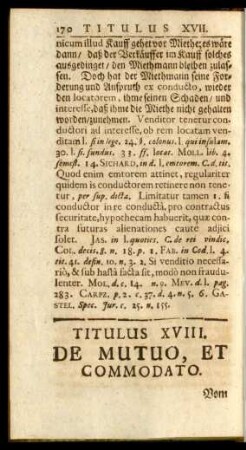 170 TITULUS XVII.
nicum illud Kauff gehet vor Miethe; es wäre
dann / daß der Verkäuffer im Kauff solches
ausgedinget / den Miethmann bleiben zulas-
sen. Doch hat der Miethmann seine For-
derung und Anspruch ex conducto, wieder
den locatorem, ihme seinen Schaden / und
interesse, daß ihme die Miethe nicht gehalten
worden / zunehmen. Venditor tenetur con-
ductori ad interesse, ob rem locatam vendi-
tam l. si in lege. 24. §. colonus. l. qui insulam.
30. l. si fundus. 33. ff. locat. MOLL. lib. 4.
semest. 14. SICHARD, in d. l. emtorem. C. d. tit.
Quod enim emtorem attinet, regulariter
quidem is conductorem retinere non tene-
tur, per sup. dicta. Limitatur tamen 1. si
conductor in re conducta, pro contractus
securitate, hypothecam habuerit, quæ contra
futuras alienationes caute adjici
solet. JAS. in l. quoties. C. de rei vindic,
COL. decis. 8. n. 18. p. 1, FAB. in Cod. l. 4.
tit. 41. defin. 10. n. 3. 2. Si venditio necessa-
riò, & sub hastâ facta sit, modò non fraudu-
lenter. MOL. d. c. 14. n. 9. MEV. d. l. pag.
283. CARPZ. p. 2. c. 37. d. 4. n. 5. 6. GA-
STEL. Spec. Jur. c. 25. n. 155.
TITULUS XVIII.
DE MUTUO, ET
COMMODATO.
Vom